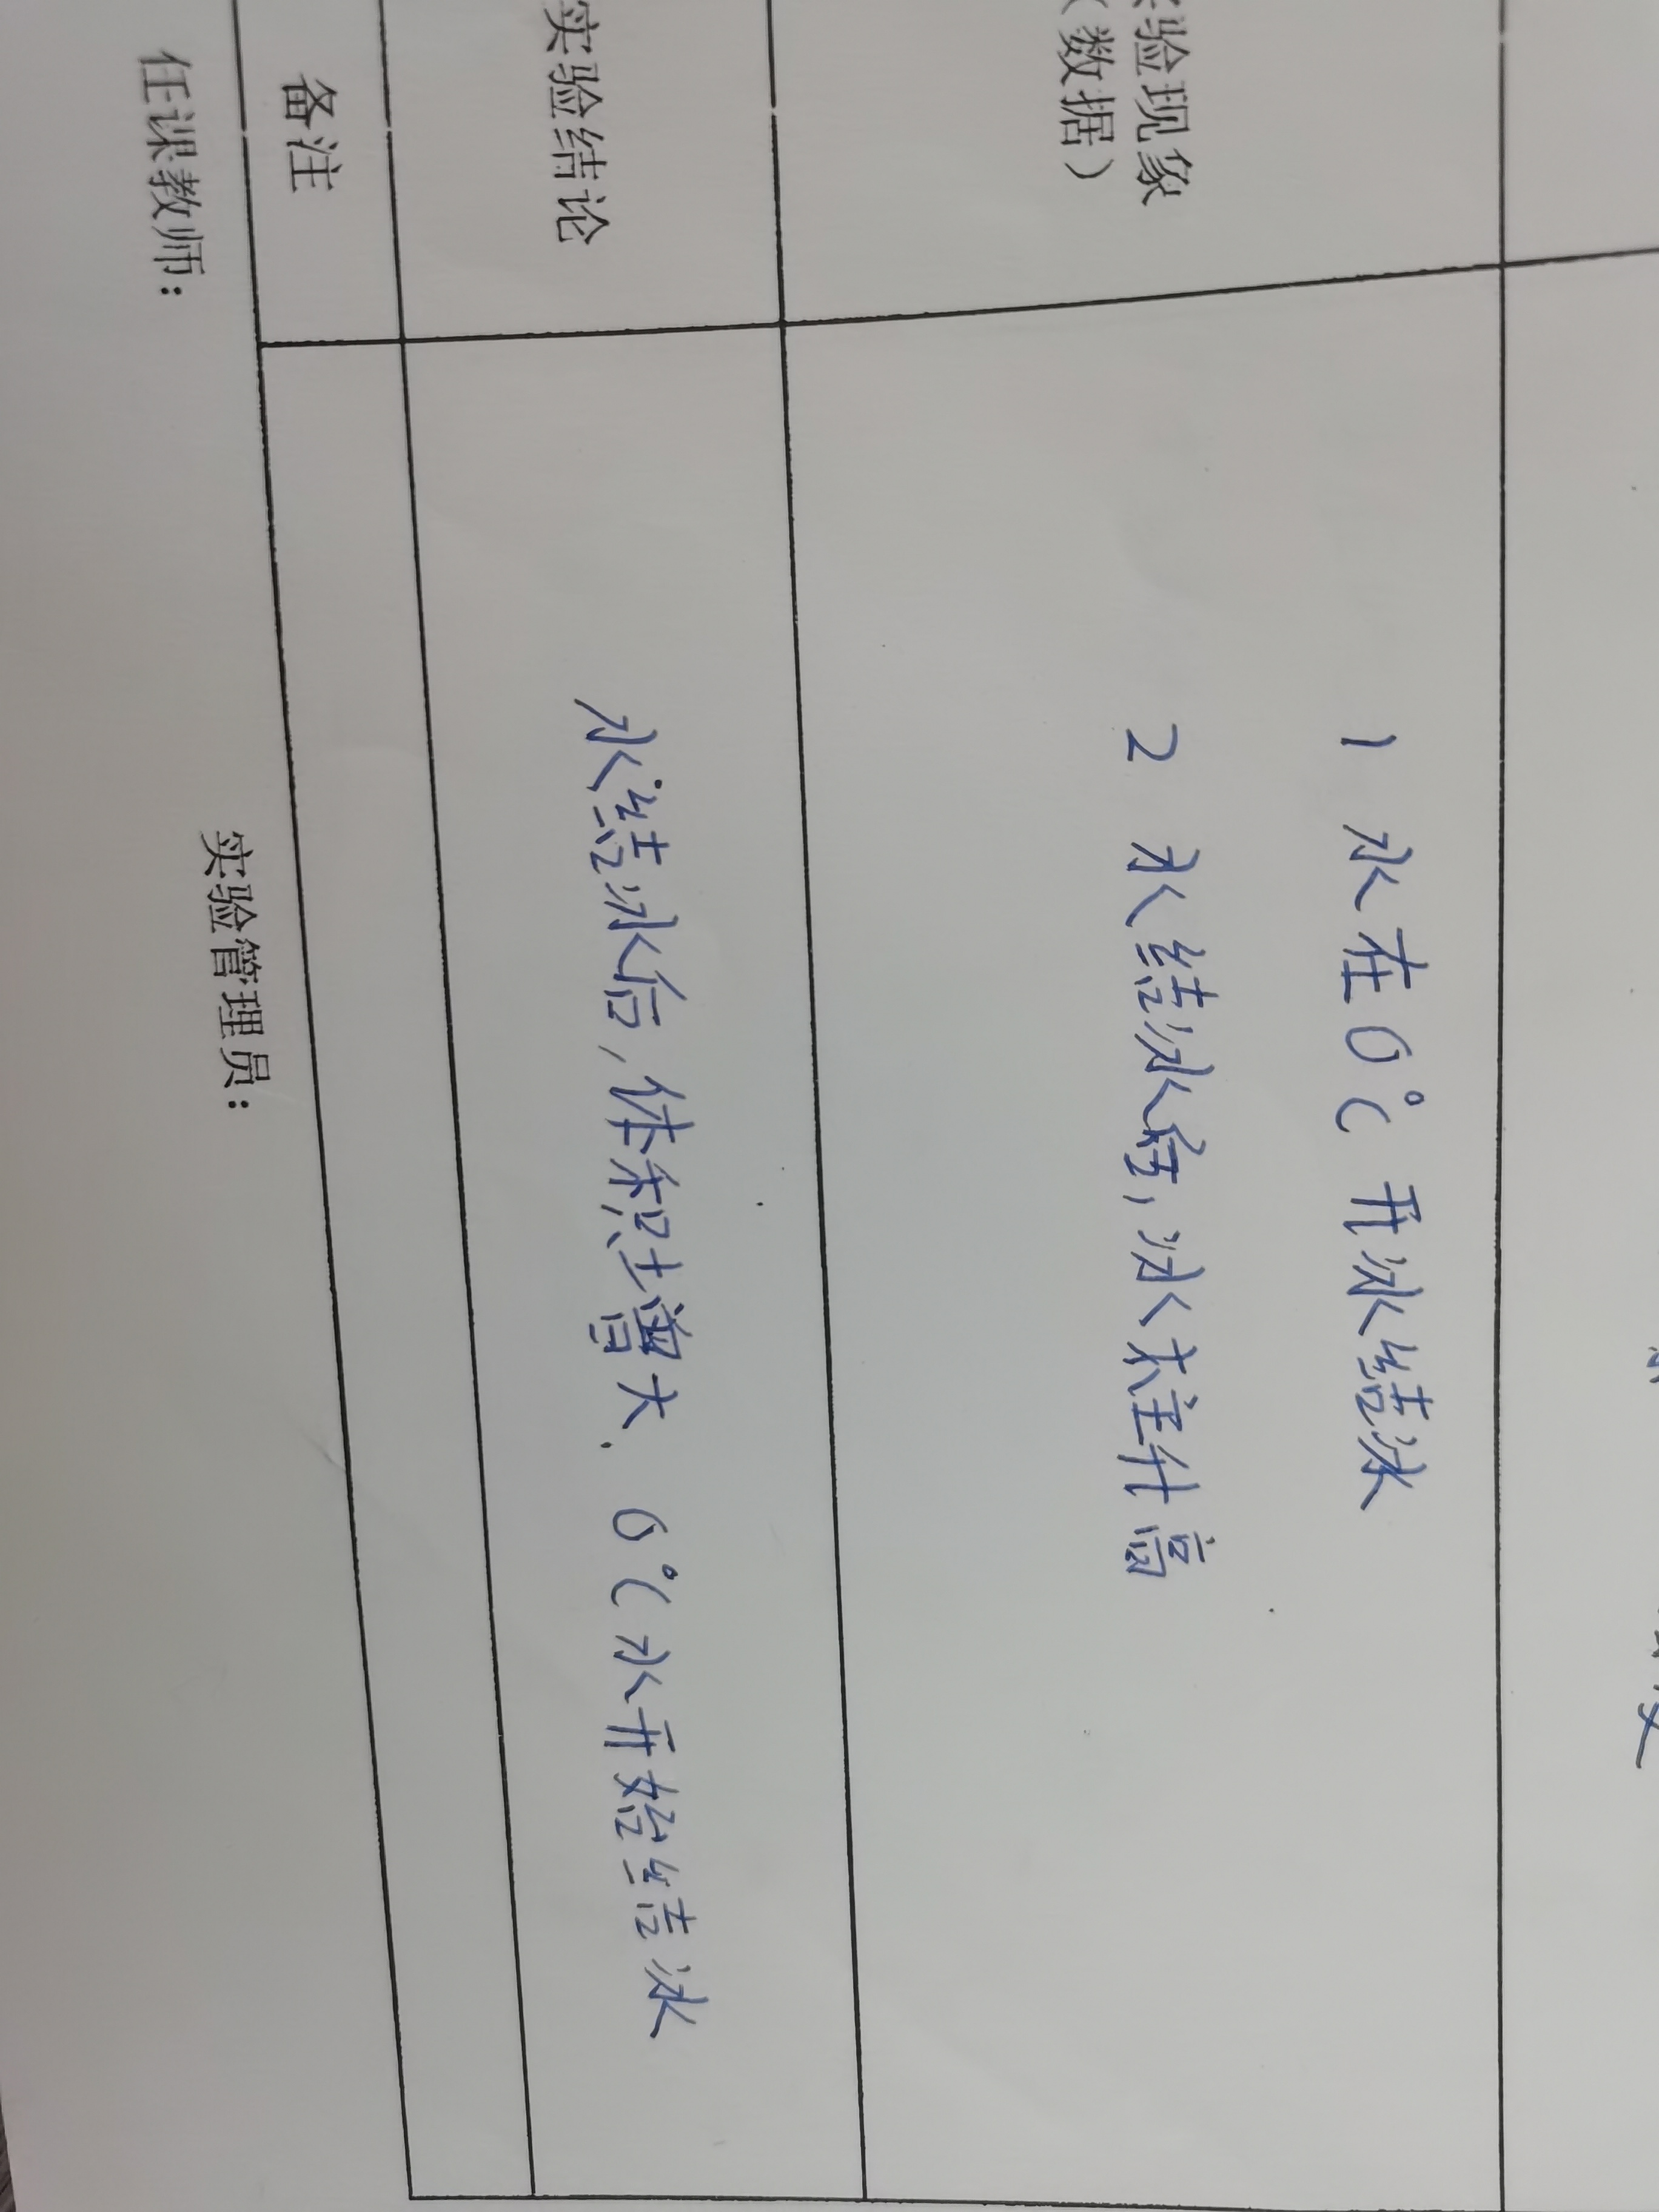 验现象
（数据）
1 水在0℃开冰结冰
2 水结冰后,冰柱升高
实验结论
水结冰后,体积增大.0℃水开始结冰
备注
任课教师：
实验管理员：